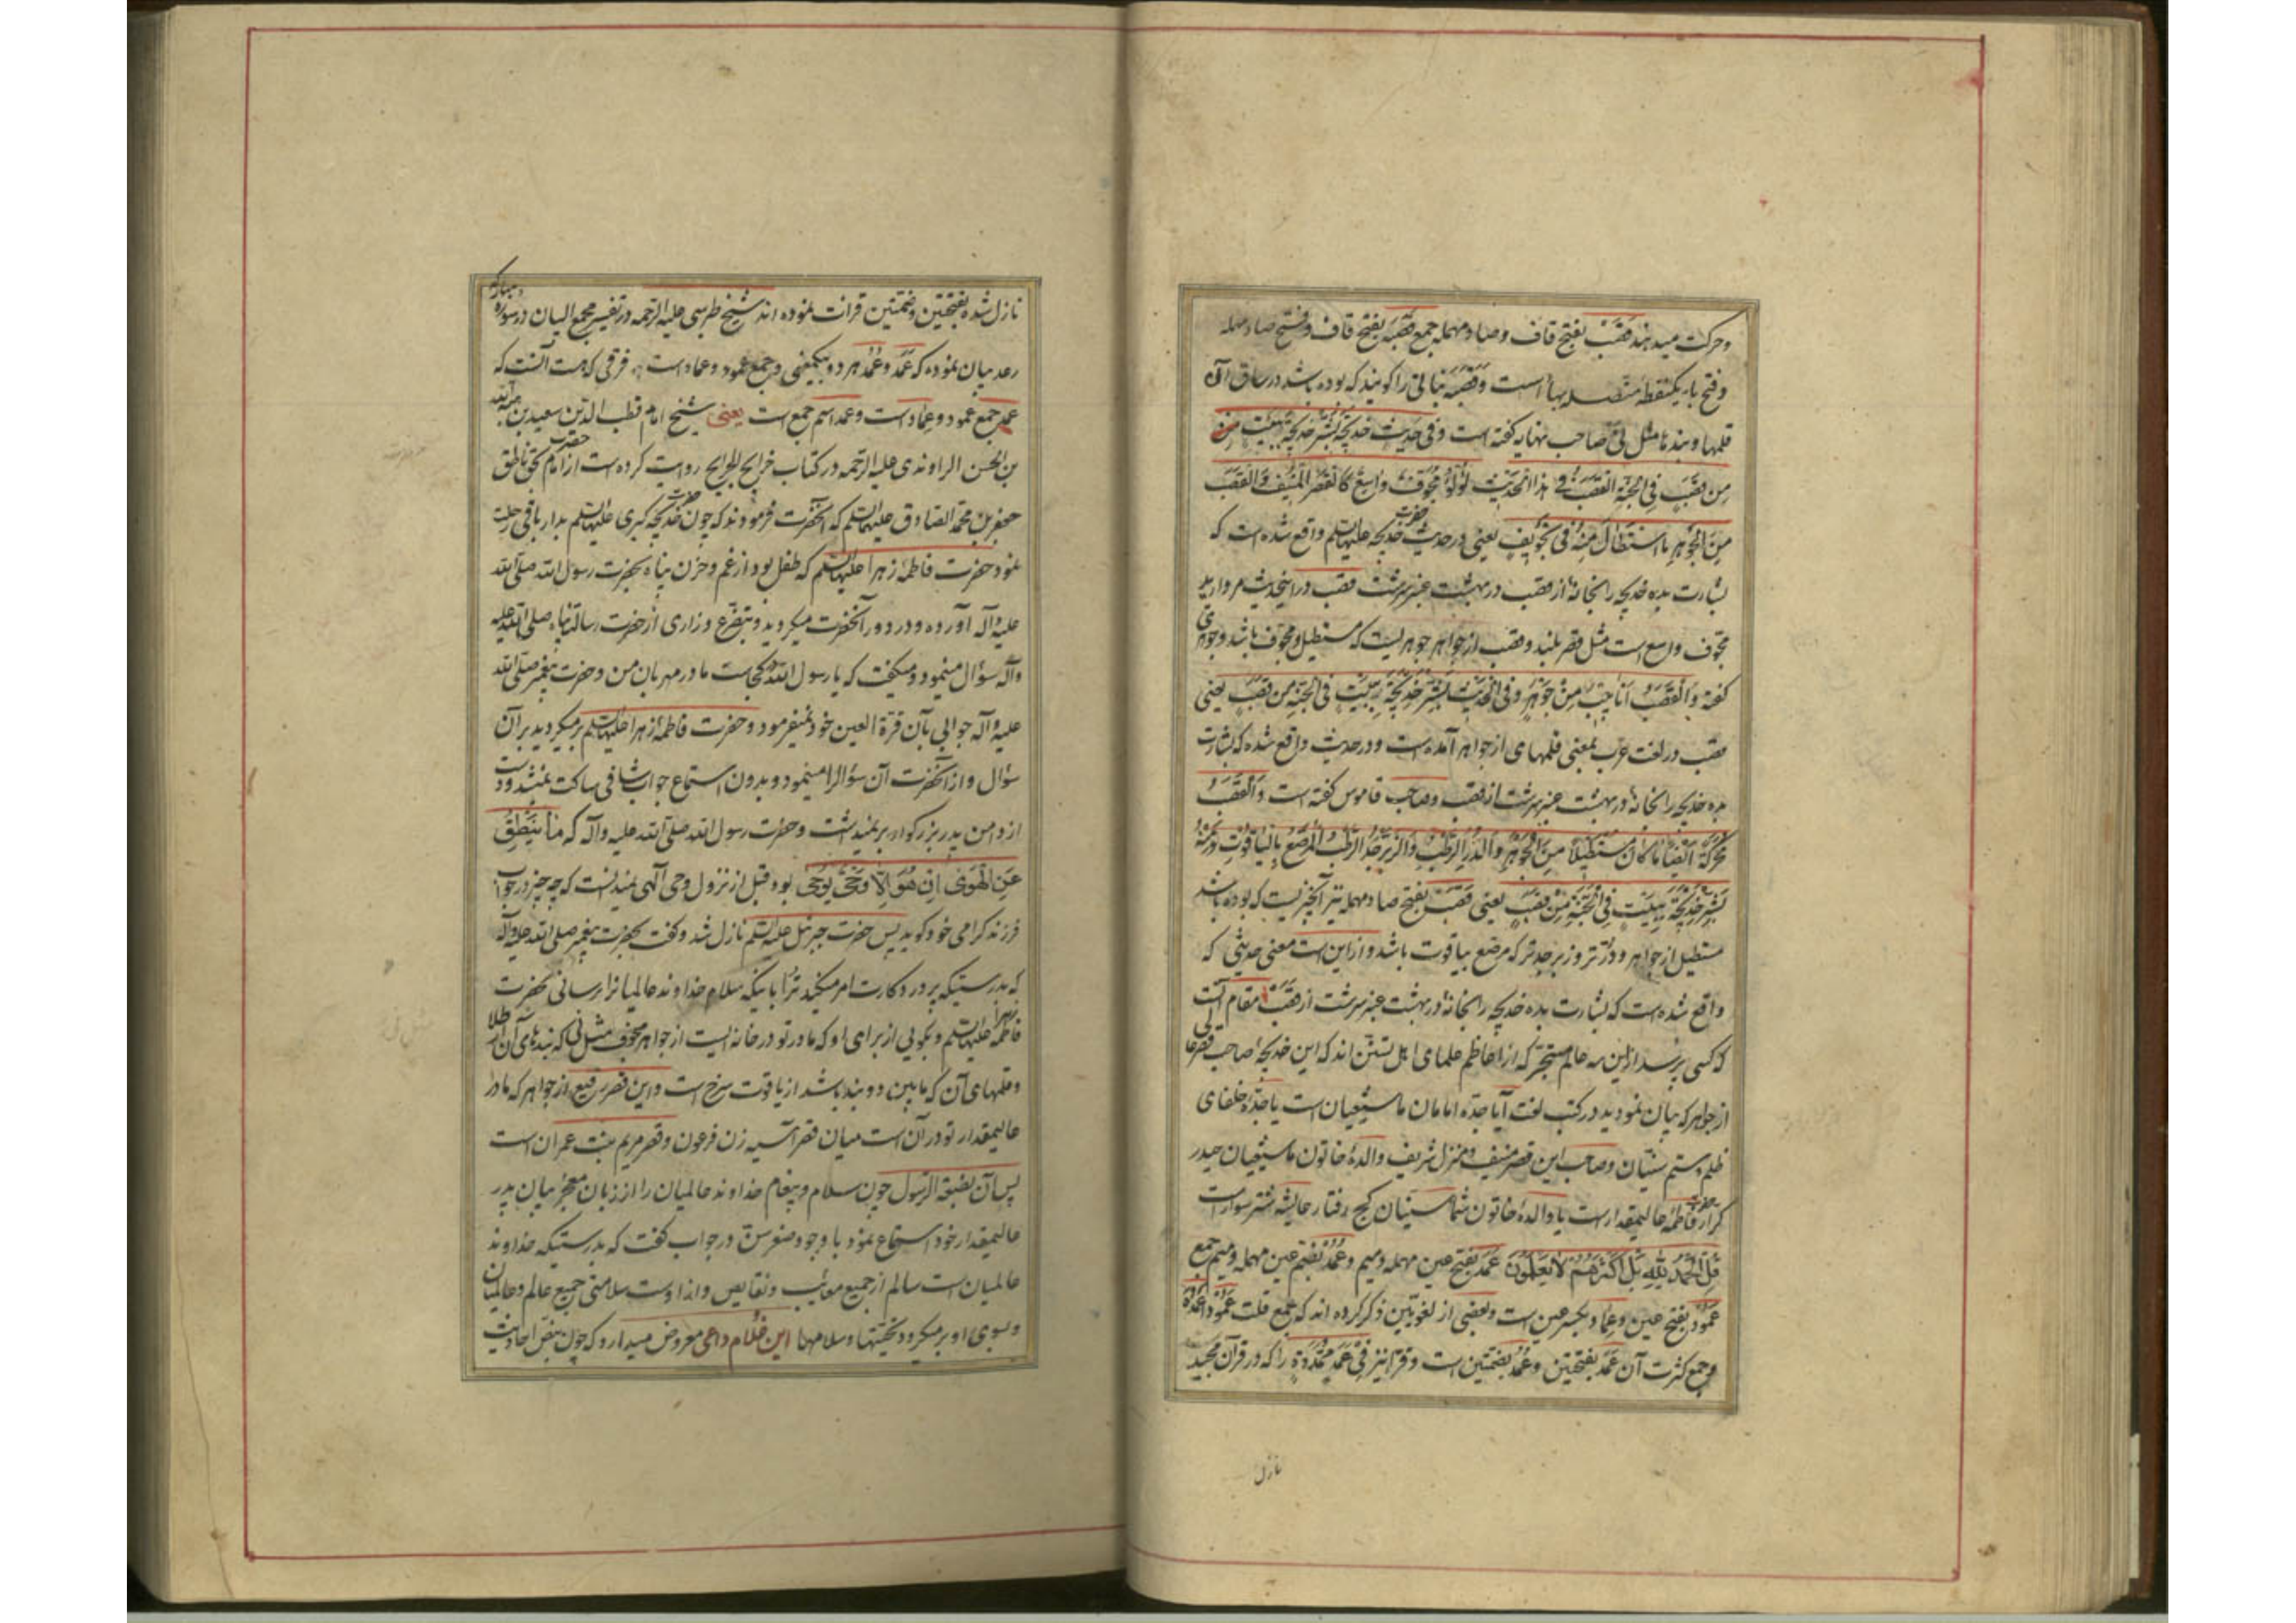 وحرکت میدهند قصَب بفتح قاف وصاد مهمله جمع قصَبَه بفتح قاف وفتح صاد مهمله
وفتح باء یکنقطه متصله بهاء است وقصَبَه نباتی را کویند که بوده باشد در ساق آن
قلمها وبندها مثل نی صاحب نهایه کفته است وفی حدیث خدیجة بَشِّر خدیجة ببیت من
من قصَب فی الجنة القصَب فی هذا الحدیث لؤلؤ مجوف واسع کالقصر المنیف والقصَب
من الجوهر ما استطال منه فی تجویف یعنی در حدیث حضرت خدیجه علیها السلم واقع شده است که
بشارت بده خدیجه را بخانهٔ از قصب در بهشت عنبر سرشت قصب در اینحدیث مروارید
مجوف واسع است مثل قصر بلند وقصب از جواهر جوهریست که مستطیل ومجوف باشد وجوهری
کفته والقصَب انابیب من جوهر وفی الحدیث بشر خدیجة ببیت فی الجنة من قصب یعنی
قصب در لغت عرب بمعنی قلمهای از جواهر آمده است ودر حدیث واقع شده که بشارت
بده خدیجه را بخانهٔ در بهشت عنبر سرشت از قصب وصاحب قاموس کفته است والقصَب
محرکة ایضا ما کان مستطیلا من الجوهر والدر الرطب والزبرجد الرطب المرصع بالیاقوت ومنه
بشر خدیجة ببیت فی الجنة من قصب یعنی قصب بفتح صاد مهمله نیز آنچیزیست که بوده باشد
مستطیل از جواهر ودر تر وزبرجد تر که مرصع بیاقوت باشد واز این است معنی حدیثی که
واقع شده است که بشارت بده خدیجه را بخانهٔ در بهشت عنبر سرشت از قصب مقام آنست
که کسی پرسد از این سه عالم متبحر که از اعاظم علمای اهل تسنن اند که این خدیجهٔ صاحب قصر عالی
از جواهر که بیان نمودید در کتب لغت آیا جدهٔ امامان ما شیعیان است یا جدهٔ خلفای
ظلم وستم سنیان وصاحب این قصر منیف ومنزل شریف والدهٔ خاتون ما شیعیان حیدر
کرار حضرت فاطمهٔ عالیمقدار است یا والدهٔ خاتون شما سنیان کج رفتار عایشهٔ شتر سوار است
قل الحمد لله بل اکثرهم لا یعلمون عَمَد بفتح عین مهمله ومیم وعُمُد بضم عین مهمله ومیم جمع
عمود بفتح عین وعماد بکسر عین است وبعضی از لغویین ذکر کرده اند که جمع قلت عمود اعمدة
وجمع کثرت آن عَمَد بفتحتین وعُمُد بضمتین است وقرّا نیز فی عمد ممددة را که در قرآن مجید
نازل
نازل شده بفتحتین وضمتین قرائت نموده اند شیخ طبرسی علیه الرحمه در تفسیر مجمع البیان در سوره مبارکه
رعد بیان نموده که عَمَد وعُمُد هر دو بیکمعنی وجمع عمود وعماد است وفرقی که هست آنست که
عُمُد جمع عمود وعماد است وعمد اسم جمع است یعنی شیخ امام قطب الدین سعید بن هبة الله
بن الحسن الراوندی علیه الرحمه در کتاب خرایج الجرایح روایت کرده است از امام بحق ناطق حضرت
جعفر بن محمد الصادق علیهما السلم که آنحضرت فرمودند که چون حضرت خدیجه کبری علیها السلم بدار باقی رحلت
نمود حضرت فاطمهٔ زهرا علیها السلم که طفل بود از غم وحزن پناه بحضرت رسول الله صلی الله
علیه وآله آورده ودر دور آنحضرت میکردید وبتضرع وزاری از حضرت رسالتپناه صلی الله علیه
وآله سؤال مینمود ومیکفت که یا رسول الله کجاست مادر مهربان من وحضرت پیغمبر صلی الله
علیه وآله جوابی بآن قرة العین خود نمیفرمود وحضرت فاطمهٔ زهرا علیها السلم بر میکردید بر آن
سؤال واز آنحضرت آن سؤالرا مینمود وبدون استماع جواب شافی ساکت نمیشد ودست
از دامن پدر بزرکوار بر نمیداشت وحضرت رسول الله صلی الله علیه وآله که ما ینطق
عن الهوی ان هو الا وحی یوحی بود قبل از نزول وحی آلهی نمیدانست که چه چیز در جواب
فرزند کرامی خود کوید پس حضرت جبرئیل علیه السلم نازل شد وکفت بحضرت پیغمبر صلی الله علیه وآله
که بدرستیکه پروردکارت امر میکند ترا باینکه سلام خداوند عالمیانرا برسانی بحضرت
فاطمه زهرا علیها السلم وبکویی از برای او که مادر تو در خانه ایست از جواهر مجوف مثل نی که بندهای آن از طلا
وقلمهای آن که مابین دو بند باشد از یاقوت سرخ است واین قصر رفیع از جواهر که مادر
عالیمقدار تو در آن است میان قصر آسیه زن فرعون وقصر مریم بنت عمران است
پس آن بضعة الرسول چون سلام وپیغام خداوند عالمیان را از زبان معجز بیان پدر
عالیمقدار خود استماع نمود با وجود صغر سن در جواب کفت که بدرستیکه خداوند
عالمیان است سالم از جمیع معائب ونقایص واز اوست سلامتی جمیع عالم وعالمیان
وبسوی او بر میکردد تحیتها وسلامها این غلام داعی معروض میدارد که چون بنص احادیث